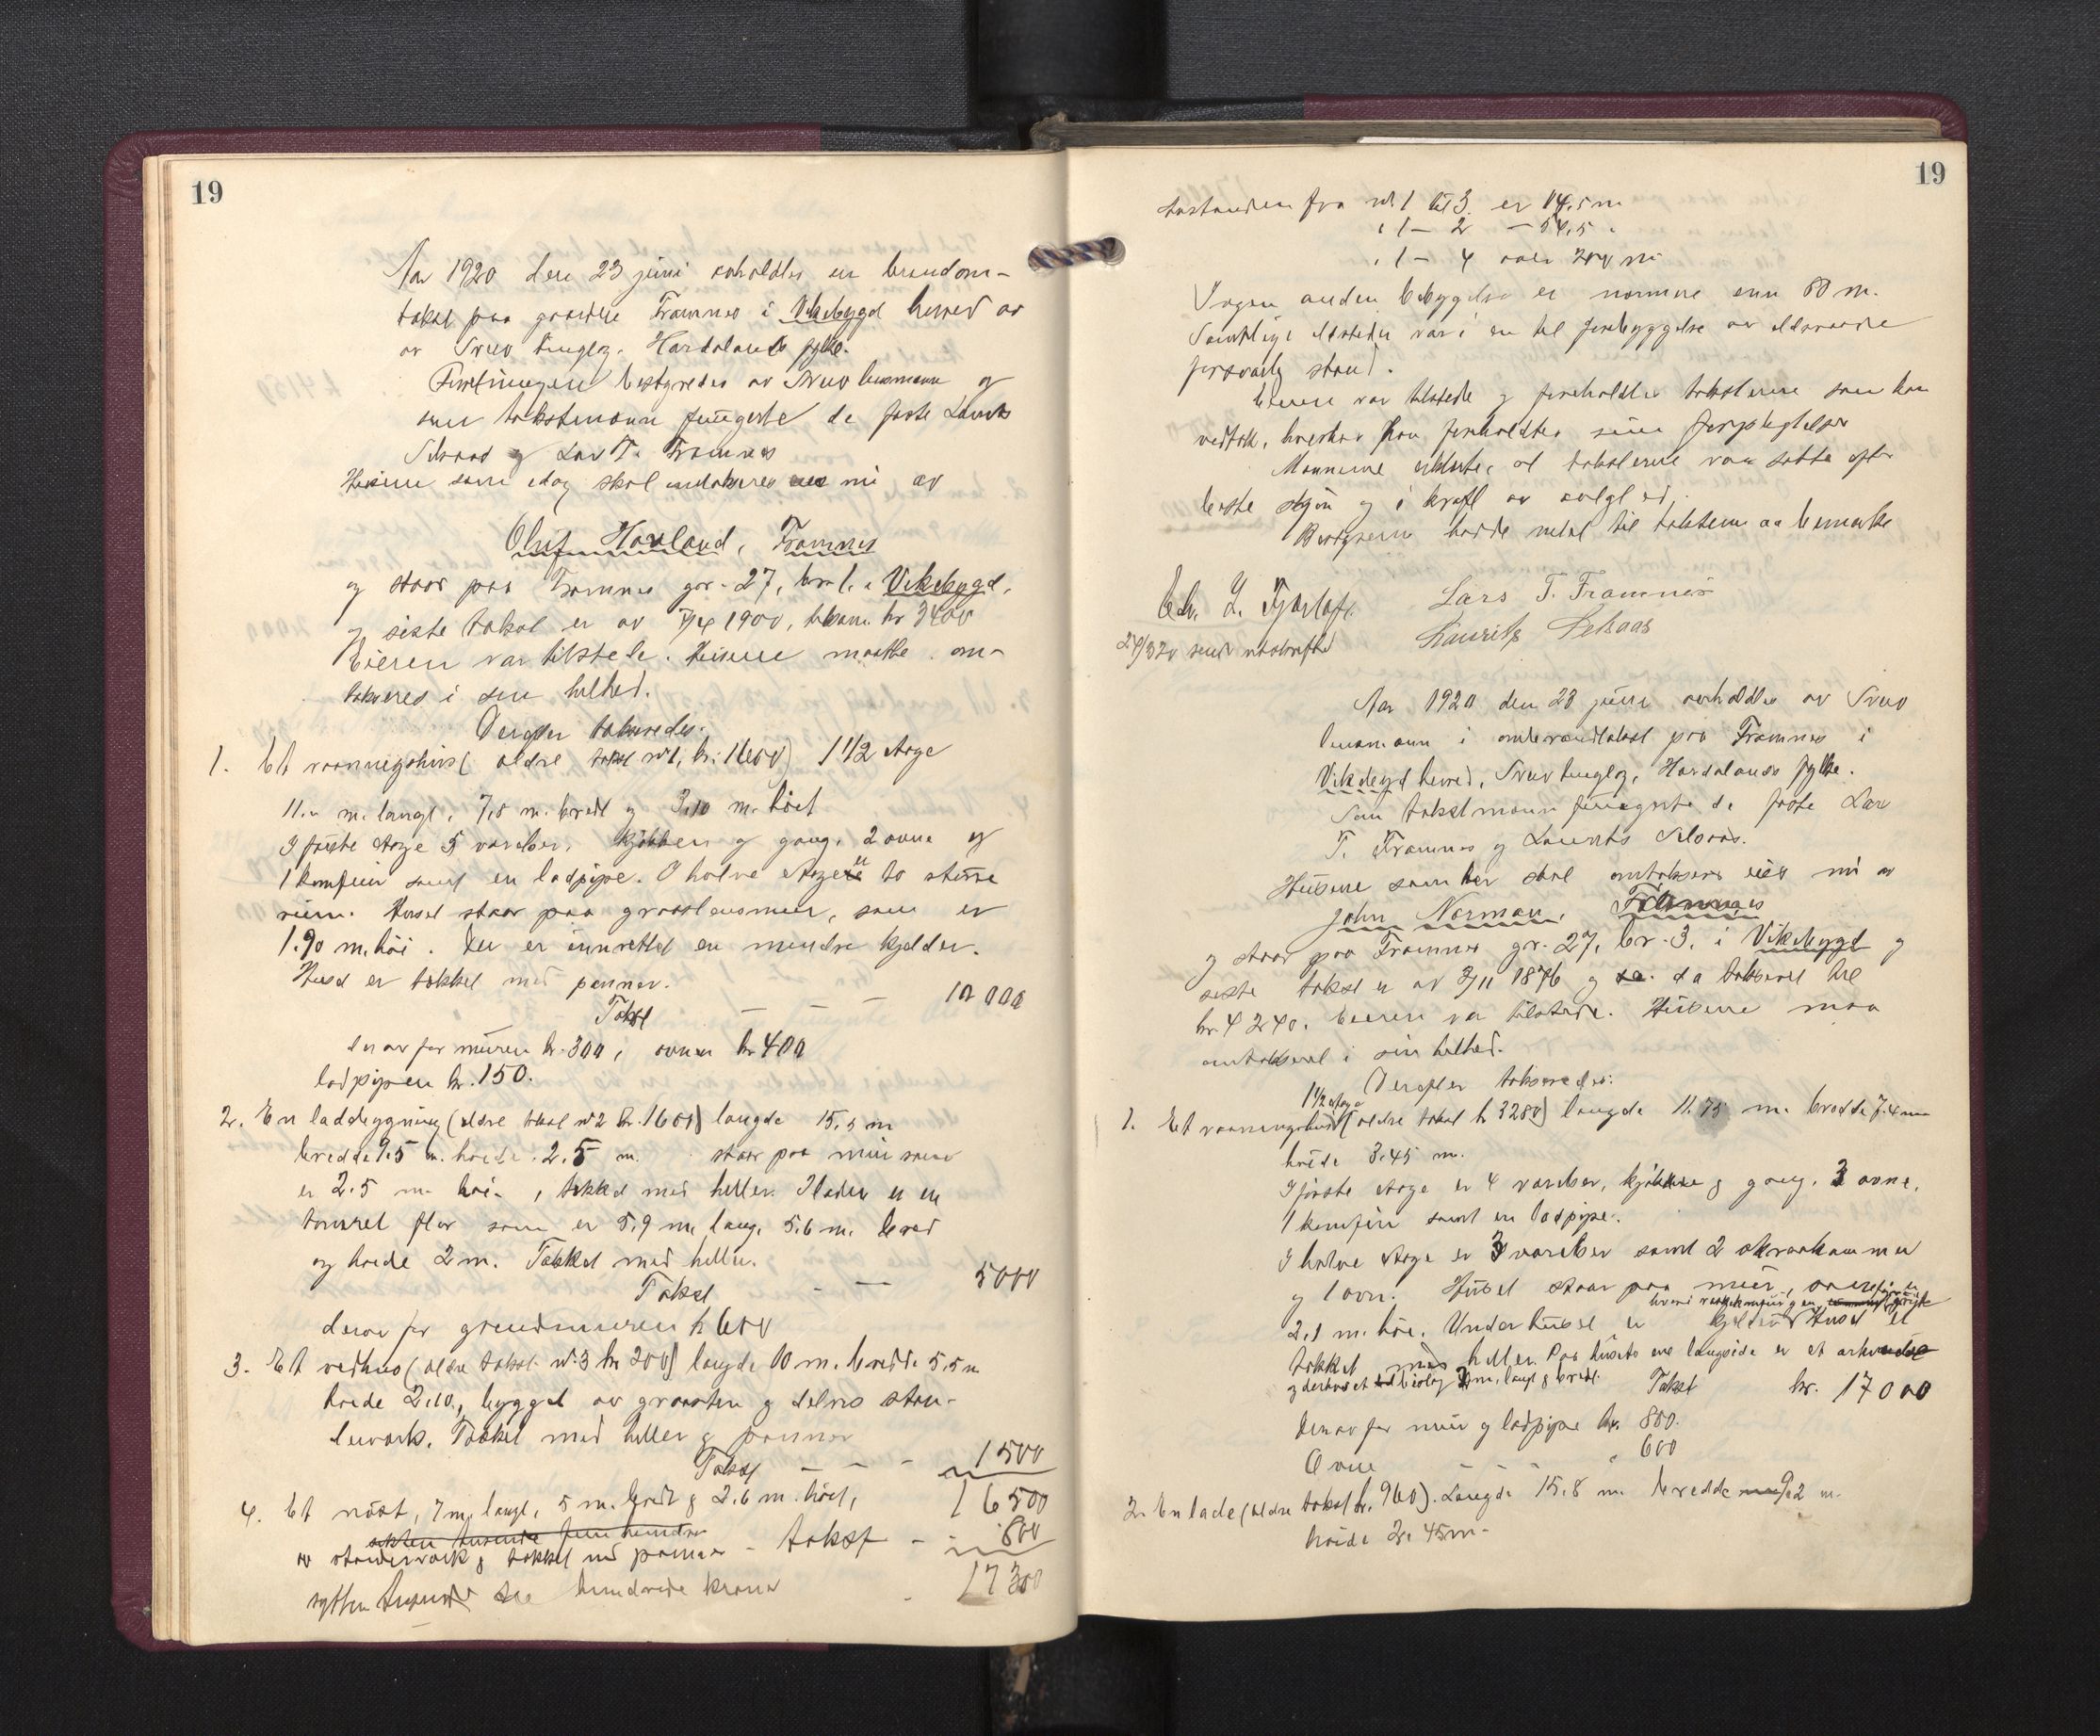 19
Aar 1920 den 23 juni avholdtes en brandom-
takst paa gaarden Framnes i Vikebygd herred av
av Sveio tinglag. Hordaland fylke.
Forretningen bestyredes av Sveio lensmann og
som takstmænn fungerte de faste Laurits
Silvaas og Lars T. Framnes
Husene som idag skal omtakseres eies nu av
Oluf Havland, Framnes
og staar paa Framnes gr. 27, br. 1. i Vikebygd,
og siste takst er av 1900, tilsam. kr 3400
Eieren var tilstede. Husene maatte om-
takseres i sin helhed.
Derefter takseredes:
1. Et vaaningshus (ældre takst nr 1, kr. 1600) 1 1/2 etage
11.0 m. langt, 7,8 m. bredt og 3,10 m. höit
I förste etage 5 værelser, kjökken og gang, 2 ovne og
1 komfur samt en ladpipe. I halve etage er to större
rum. Huset staar paa graastensmur, som er
1.90 m. höi. Der er innrettet en mindre kjelder.
Huset er tækket med panner.
Takst — — — 10 000
derav for muren kr. 300, ovnen kr 400
ladpipen kr. 150.
2. En ladebygning (ældre takst nr 2 kr. 1600) længde 15,5 m
bredde 9.5 m. höide 2.5 m. staar paa mur som
er 2.5 m höi, tækket med heller. I laden er en
tömret flor som er 5.9 m lang, 5.6 m. bred
og höide 2 m. Tækket med heller.
Takst - — 5000
derav for grundmuren kr 600
3. Et vedhus (ældre takst nr. 3 kr 200) længde 10 m. bredde 5.5 m
höide 2.10, bygget av graasten og delvis sten-
derverk. Tækket med heller & panner
Takst — — - 1500
4. Et nöst, 7 m. langt, 5 m. bredt & 2.6 m. höit, 16500
seksten tusinde fem hundre
av stenderverk & tækket med panner - takst - - 800
sytten tusinde tre hundrede kroner 17300
19
Avstanden fra nr. 1 til 3 er 14,5 m
" 1 — 2 — 54,5 "
" 1 — 4 over 200 m
Ingen anden bebyggelse er nærmere enn 60 m.
Samtlige ildsteder var i en til forebyggelse av ildsvaade
forsvarlig stand.
Eieren var tilstede og foreholdtes taksterne som han
vedtok, hvorhos han foreholdtes sine forpligtelser
Mænnene erklærte, at taksterne var satte efter
beste skjön og i kraft av avlagt ed.
Bestyreren hadde intet til taksten aa bemerke
Lars T. Framnes
Laurits Silvaas
Aar 1920 den 23 juni avholdtes av Sveio
lensmann i ombrandtakst paa Framnes i
Vikebygd herred, Sveio tinglag, Hordaland fylke.
Som takstmænn fungerte de faste Lars
T. Framnes og Laurits Silvaas.
Husene som her skal omtakseres eies nu av
John Norman, Framnes
og staar paa Framnes gr. 27, br. 3, i Vikebygd og
siste takst er av 3/11 1876 og da takseret til
kr. 4240. Eieren var tilstede. Husene maa
omtakseret i sin helhed.
Derefter takseredes:
1 1/2 etage
1. Et vaaningshus (ældre takst kr 3280) længde 11.75 m. bredde 7.4 m
höide 3.45 m.
I förste etage er 4 værelser, kjökken & gang. 3 ovne,
1 komfur samt en ladpipe.
I halve etage er 3 værelser samt 2 skraakammer
og 1 ovn. Huset staar paa mur,
2,1 m. höi. Under huset er kjelder Huset er
tækket med heller. Paa husets ene langside er et
Takst kr. 17000
Derav for mur og ladpipe kr. 800.
Ovne - - - " 600
2. En lade (ældre takst kr. 960). Længde 15.8 m bredde 9.2 m.
höide 2.45 m.